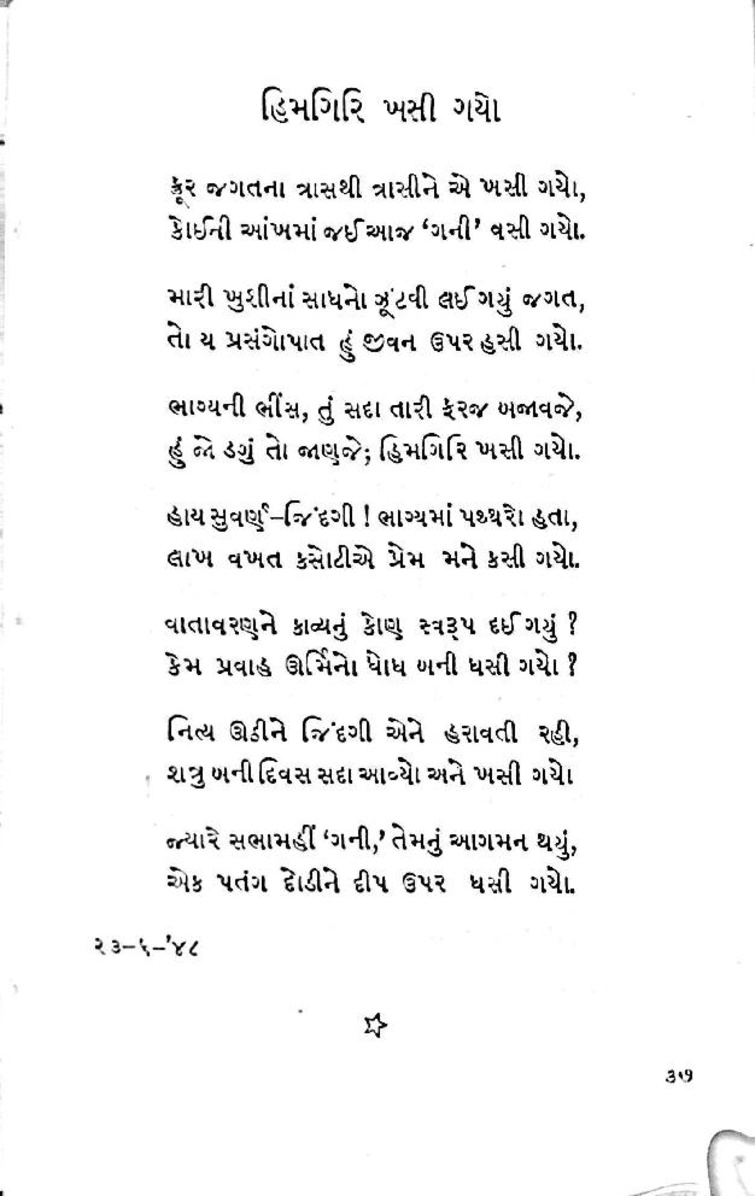 હિમગિરિ ખસી ગયો
ક્રૂર જગતના ત્રાસથી ત્રાસીને એ ખસી ગયો,
કોઈની આંખમાં જઈ આજ ‘ગની’ વસી ગયો.
મારી ખુશીનાં સાધનો ઝૂંટવી લઈ ગયું જગત,
તો ય પ્રસંગોપાત હું જીવન ઉપર હસી ગયો.
ભાગ્યની ભીંસ, તું સદા તારી ફરજ બજાવજે,
હું જો ડગું તો જાણજે; હિમગિરિ ખસી ગયો.
હાય સુવર્ણ–જિંદગી ! ભાગ્યમાં પથ્થરો હતા,
લાખ વખત કસોટીએ પ્રેમ મને કસી ગયો.
વાતાવરણને કાવ્યનું કોણ સ્વરૂપ દઈ ગયું ?
કેમ પ્રવાહ ઊર્મિનો ધોધ બની ધસી ગયો ?
નિત્ય ઊડીને જિંદગી એને હરાવતી રહી,
શત્રુ બની દિવસ સદા આવ્યો અને ખસી ગયો
જ્યારે સભામહીં ‘ગની,’ તેમનું આગમન થયું,
એક પતંગ દોડીને દીપ ઉપર ધસી ગયો.
૨૩–૬–’૪૮
૩૭